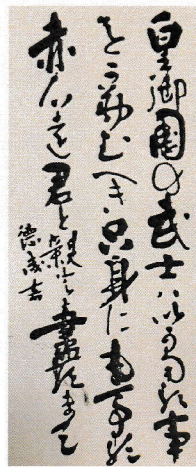 皇御國の武士ハいかなる事
をか勤むへき只身にもてる
赤心を君と親とに盡すまて
徳成書